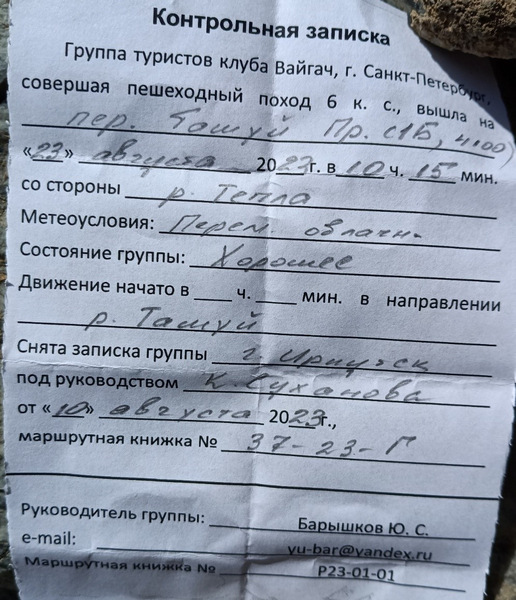 Контрольная записка
Группа туристов клуба Вайгач, г. Санкт-Петербург,
совершая пешеходный поход 6 к. с., вышла на
пер. Ташуй Пр. с1Б, 4100)
«23» августа 2023г. в 10 ч. 15 мин.
со стороны р. Тепла
Метеоусловия: Перем. облачн.
Состояние группы: Хорошее
Движение начато в ___ ч. ___ мин. в направлении
р. Ташуй
Снята записка группы г. Иркутск
под руководством К. Суханова
от «10» августа 2023г.,
маршрутная книжка № 37-23-Г
Руководитель группы: Барышков Ю. С.
e-mail: yu-bar@yandex.ru
Маршрутная книжка № Р23-01-01